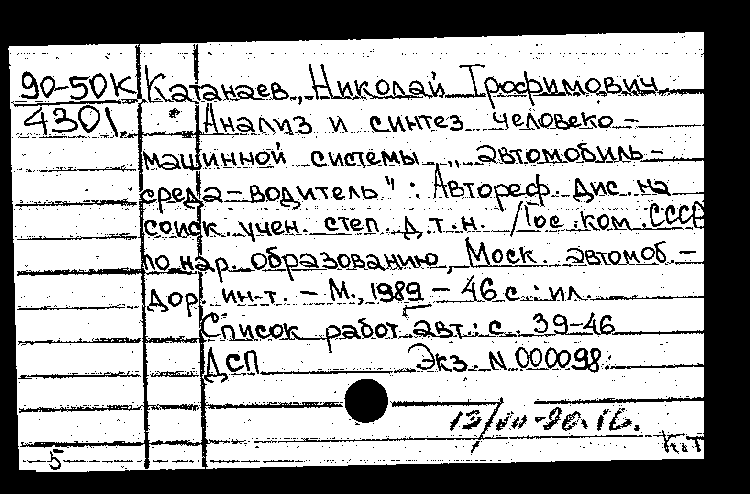 90-50К Катанаев, Николай Трофимович
4301 * Анализ и синтез человеко-
машинной системы „автомобиль-
среда-водитель": Автореф. дис. на
соиск. учен. степ. д.т.н. /Гос. ком. СССР
по нар. образованию, Моск. автомоб.-
дор. ин-т. - М., 1989 - 46 с.: ил.
Список работ авт.: с. 39-46
ДСП Экз. N 000098.
5